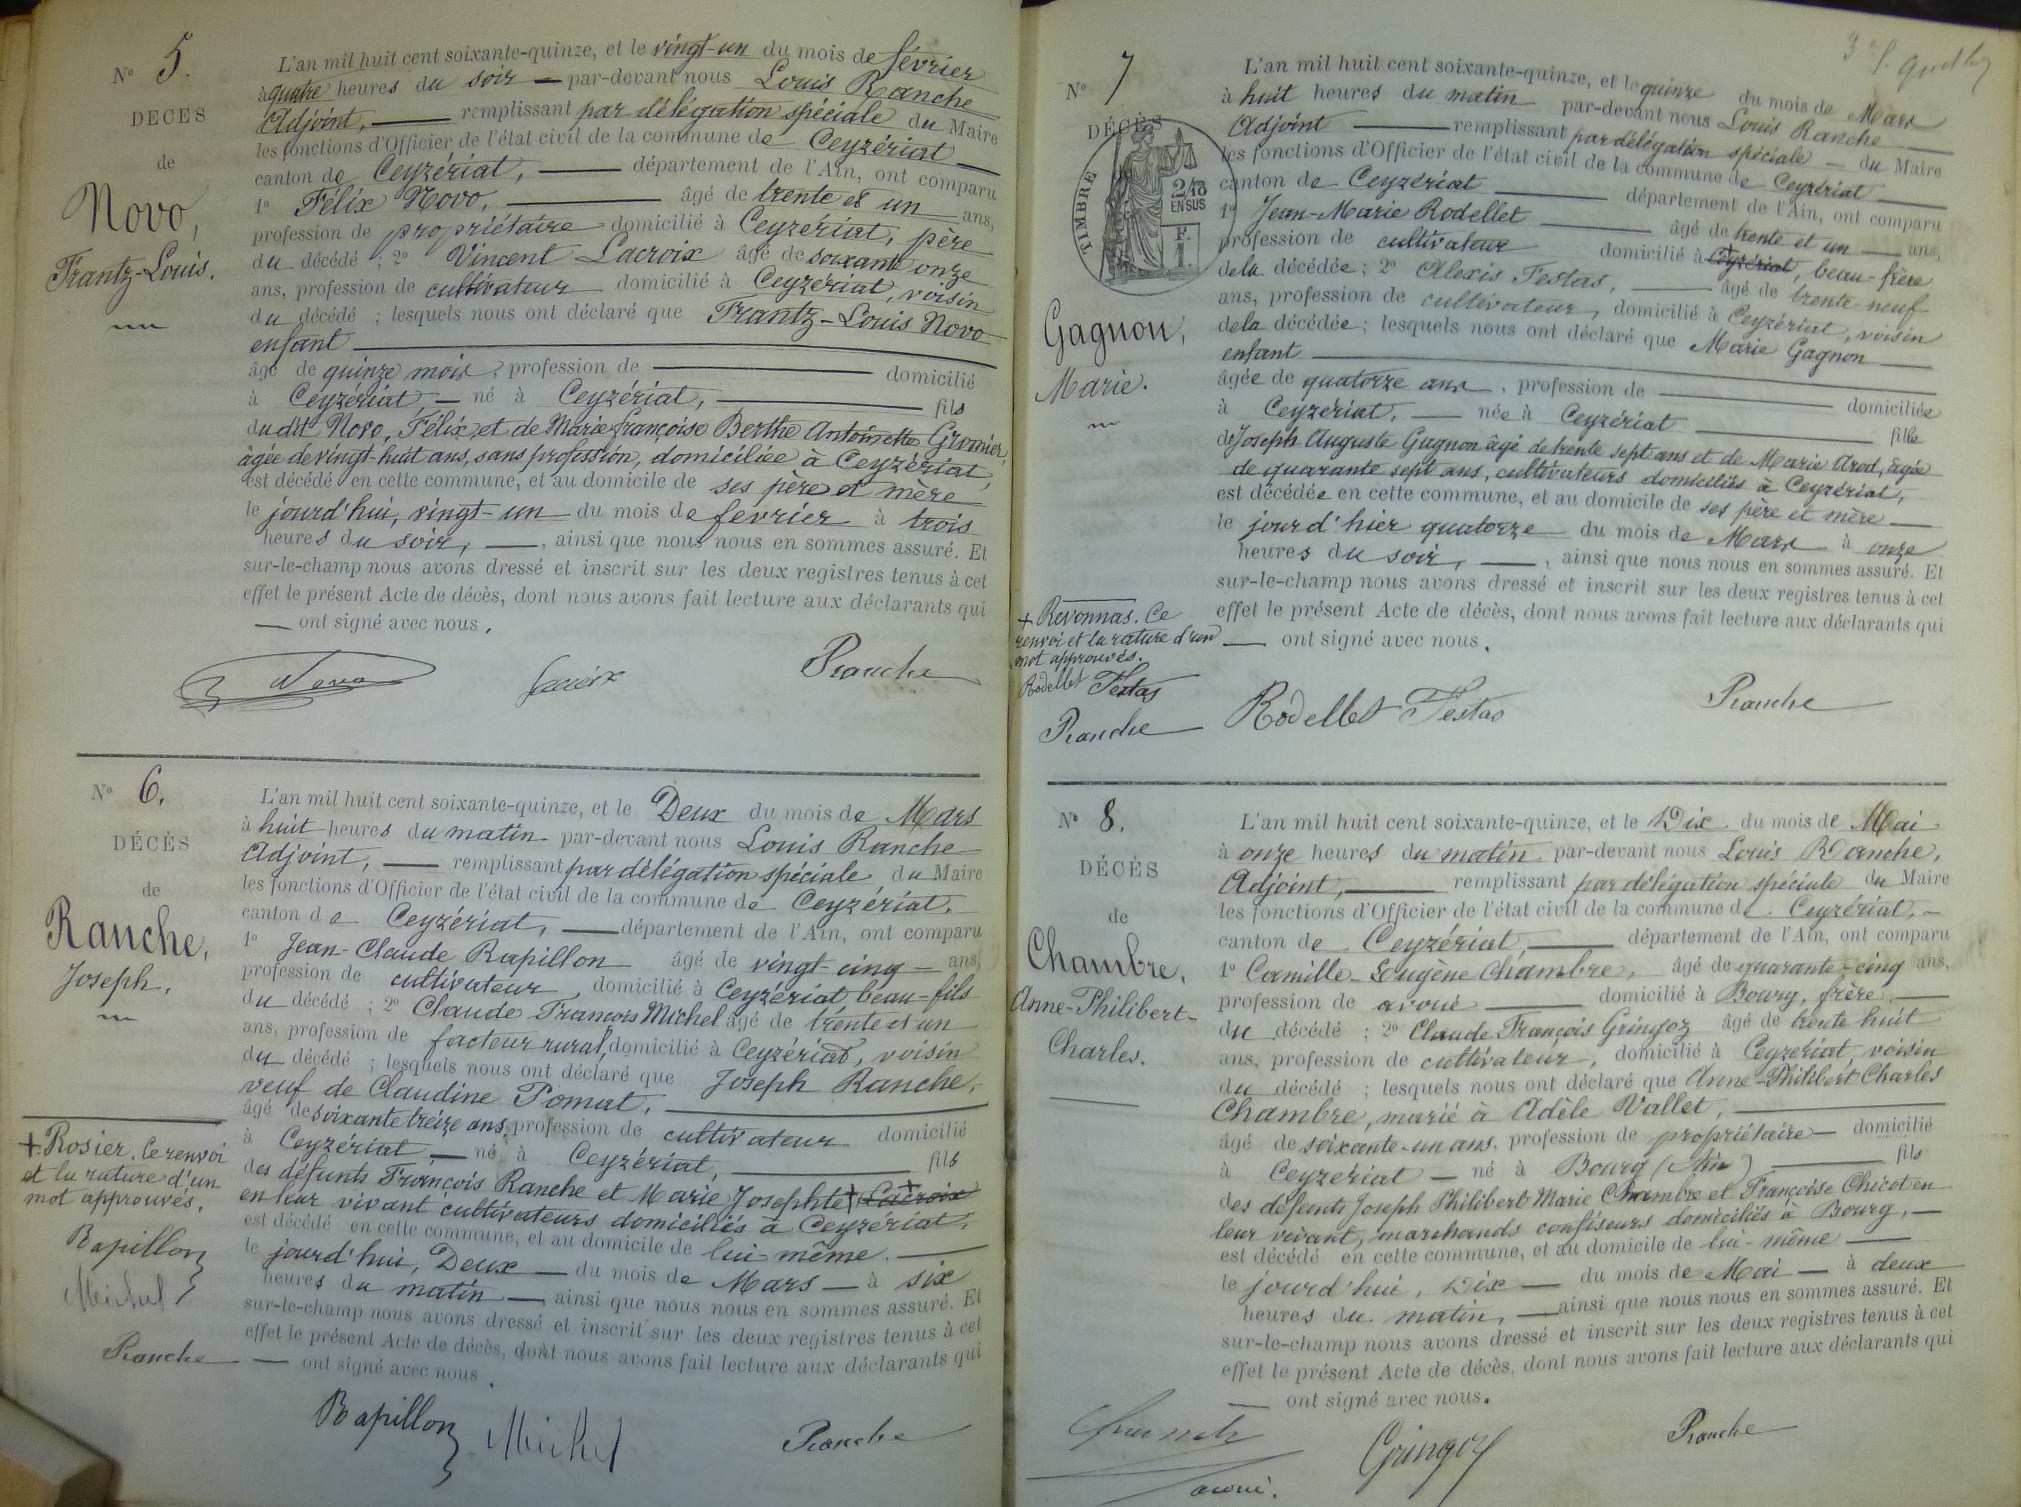 N° 5.
DÉCÈS
de
Novo,
Frantz-Louis.
L'an mil huit cent soixante-quinze, et le vingt-un du mois de février
à quatre heures du soir par-devant nous Louis Ranche
Adjoint, remplissant par délégation spéciale du Maire
les fonctions d'Officier de l'état civil de la commune de Ceyzériat
canton de Ceyzériat, département de l'Ain, ont comparu
1° Félix Novo, âgé de trente et un ans,
profession de propriétaire domicilié à Ceyzériat, père
du décédé ; 2° Vincent Lacroix âgé de soixante onze
ans, profession de cultivateur domicilié à Ceyzériat, voisin
du décédé ; lesquels nous ont déclaré que Frantz-Louis Novo
enfant
âgé de quinze mois, profession de domicilié
à Ceyzériat, né à Ceyzériat, fils
du dit Novo, Félix, et de Marie françoise Berthe Antoinette Gromier,
âgée de vingt-huit ans, sans profession, domiciliée à Ceyzériat,
est décédé en cette commune, et au domicile de ses père et mère
le jourd'hui, vingt-un du mois de février à trois
heures du soir, ainsi que nous nous en sommes assuré. Et
sur-le-champ nous avons dressé et inscrit sur les deux registres tenus à cet
effet le présent Acte de décès, dont nous avons fait lecture aux déclarants qui
ont signé avec nous.
Novo Lacroix Ranche
N° 6.
DÉCÈS
de
Ranche,
Joseph.
L'an mil huit cent soixante-quinze, et le Deux du mois de Mars
à huit heures du matin par-devant nous Louis Ranche
Adjoint, remplissant par délégation spéciale du Maire
les fonctions d'Officier de l'état civil de la commune de Ceyzériat.
canton de Ceyzériat, département de l'Ain, ont comparu
1° Jean-Claude Rapillon âgé de vingt-cinq ans,
profession de cultivateur domicilié à Ceyzériat beau-fils
du décédé ; 2° Claude François Michel âgé de trente et un
ans, profession de facteur rural, domicilié à Ceyzériat, voisin
du décédé ; lesquels nous ont déclaré que Joseph Ranche,
veuf de Claudine Pomat,
âgé de soixante treize ans, profession de cultivateur domicilié
à Ceyzériat né à Ceyzériat, fils
des défunts François Ranche et Marie Josephte + Lacroix
en leur vivant cultivateurs domiciliés à Ceyzériat,
est décédé en cette commune, et au domicile de lui-même.
le jourd'hui, Deux du mois de Mars à six
heures du matin ainsi que nous nous en sommes assuré. Et
sur-le-champ nous avons dressé et inscrit sur les deux registres tenus à cet
effet le présent Acte de décès, dont nous avons fait lecture aux déclarants qui
ont signé avec nous.
+ Rosier. Ce renvoi
et la rature d'un
mot approuvés.
Rapillon
Michel
Ranche
Rapillon Michel Ranche
N° 7
DÉCÈS
TIMBRE
2/10
EN SUS
F.
1.
Gagnon,
Marie.
L'an mil huit cent soixante-quinze, et le quinze du mois de Mars
à huit heures du matin par-devant nous Louis Ranche
Adjoint remplissant par délégation spéciale du Maire
les fonctions d'Officier de l'état civil de la commune de Ceyzériat
canton de Ceyzériat département de l'Ain, ont comparu
1° Jean-Marie Rodellet âgé de trente et un ans,
profession de cultivateur domicilié à + Ceyzériat, beau-frère
de la décédée ; 2° Alexis Festas, âgé de trente-neuf
ans, profession de cultivateur, domicilié à Ceyzériat, voisin
de la décédée ; lesquels nous ont déclaré que Marie Gagnon
enfant
âgée de quatorze ans, profession de domiciliée
à Ceyzériat, née à Ceyzériat fille
de Joseph Auguste Gagnon âgé de trente sept ans et de Marie Arod, âgée
de quarante sept ans, cultivateurs domiciliés à Ceyzériat,
est décédée en cette commune, et au domicile de ses père et mère
le jour d'hier quatorze du mois de Mars à onze
heures du soir, ainsi que nous nous en sommes assuré. Et
sur-le-champ nous avons dressé et inscrit sur les deux registres tenus à cet
effet le présent Acte de décès, dont nous avons fait lecture aux déclarants qui
ont signé avec nous.
+ Revonnas. Ce
renvoi et la rature d'un
mot approuvés.
Rodellet Festas
Ranche
Rodellet Festas Ranche
N° 8.
DÉCÈS
de
Chambre,
Anne-Philibert-
Charles.
L'an mil huit cent soixante-quinze, et le Dix du mois de Mai
à onze heures du matin par-devant nous Louis Ranche,
Adjoint, remplissant par délégation spéciale du Maire
les fonctions d'Officier de l'état civil de la commune de Ceyzériat,
canton de Ceyzériat, département de l'Ain, ont comparu
1° Camille-Eugène Chambre, âgé de quarante-cinq ans,
profession de avoué domicilié à Bourg, frère
du décédé ; 2° Claude François Gringoz âgé de trente huit
ans, profession de cultivateur, domicilié à Ceyzériat, voisin
du décédé ; lesquels nous ont déclaré que Anne-Philibert Charles
Chambre, marié à Adèle Vallet,
âgé de soixante-un ans, profession de propriétaire domicilié
à Ceyzériat né à Bourg (Ain) fils
des défunts Joseph Philibert Marie Chambre et Françoise Chicot en
leur vivant, marchands confiseurs domiciliés à Bourg,
est décédé en cette commune, et au domicile de lui-même
le jourd'hui, Dix du mois de Mai à deux
heures du matin, ainsi que nous nous en sommes assuré. Et
sur-le-champ nous avons dressé et inscrit sur les deux registres tenus à cet
effet le présent Acte de décès, dont nous avons fait lecture aux déclarants qui
ont signé avec nous.
Gringoz Ranche
avoué.